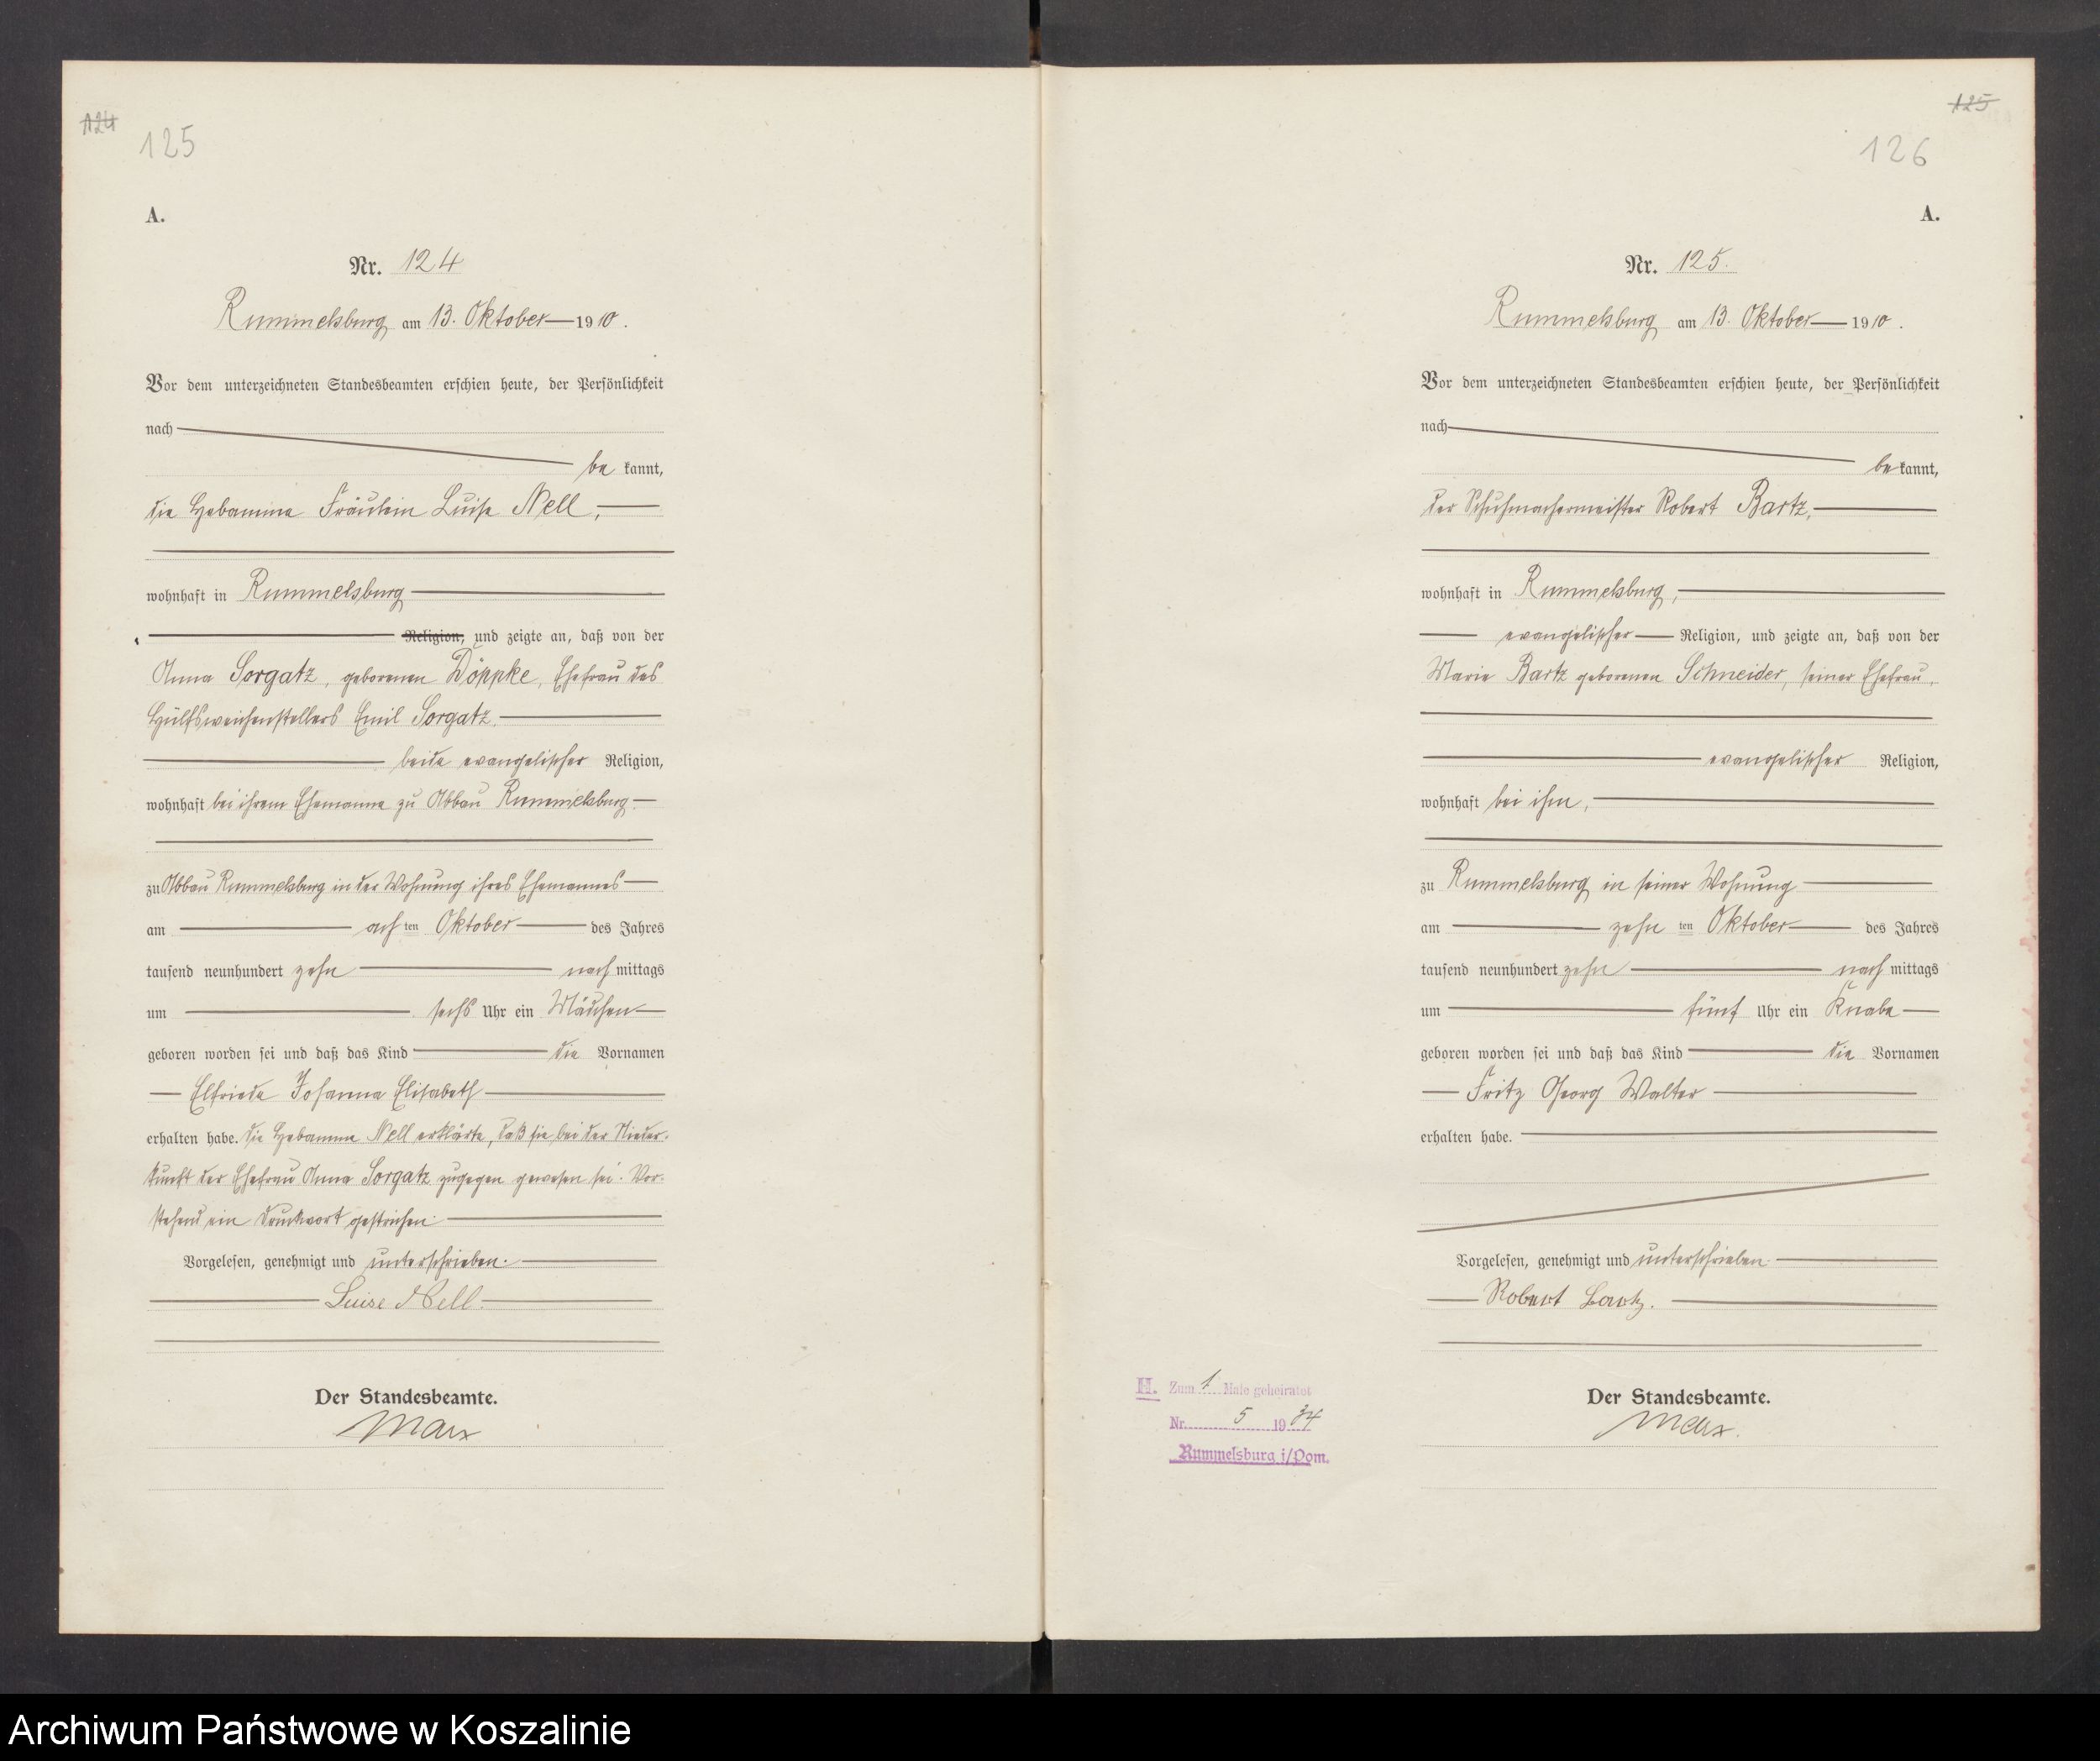 124
125
A.
Nr. 124
Rummelsburg am 13. Oktober 1910.
Vor dem unterzeichneten Standesbeamten erschien heute, der Persönlichkeit
nach
be kannt,
die Hebamme Fräulein Luise Nell,
wohnhaft in Rummelsburg
Religion, und zeigte an, daß von der
Anna Sorgatz, geborenen Döppke, Ehefrau des
Hülfsweichenstellers Emil Sorgatz.
beide evangelischer Religion,
wohnhaft bei ihrem Ehemanne zu Abbau Rummelsburg.
zu Abbau Rummelsburg in der Wohnung ihres Ehemannes
am ach ten Oktober des Jahres
tausend neunhundert zehn nach mittags
um sechs Uhr ein Mädchen
geboren worden sei und daß das Kind die Vornamen
Elfriede Johanna Elisabeth
erhalten habe. Die Hebamme Nell erklärte, daß sie bei der Nieder-
kunft der Ehefrau Anna Sorgatz zugegen gewesen sei. Vor-
stehend ein Druckwort gestrichen.
Vorgelesen, genehmigt und unterschrieben.
Luise Nell.
Der Standesbeamte.
Marx
125
126
A.
Nr. 125.
Rummelsburg am 13. Oktober 1910.
Vor dem unterzeichneten Standesbeamten erschien heute, der Persönlichkeit
nach
be kannt,
der Schuhmachermeister Robert Bartz,
wohnhaft in Rummelsburg,
evangelischer Religion, und zeigte an, daß von der
Marie Bartz geborenen Schneider, seiner Ehefrau,
evangelischer Religion,
wohnhaft bei ihm,
zu Rummelsburg in seiner Wohnung
am zehn ten Oktober des Jahres
tausend neunhundert zehn nach mittags
um fünf Uhr ein Knabe
geboren worden sei und daß das Kind die Vornamen
Fritz Georg Walter
erhalten habe.
Vorgelesen, genehmigt und unterschrieben.
Robert Bartz.
Der Standesbeamte.
Marx.
H. Zum 1 Male geheiratet
Nr. 5 1934
Rummelsburg i/Pom.
Archiwum Państwowe w Koszalinie